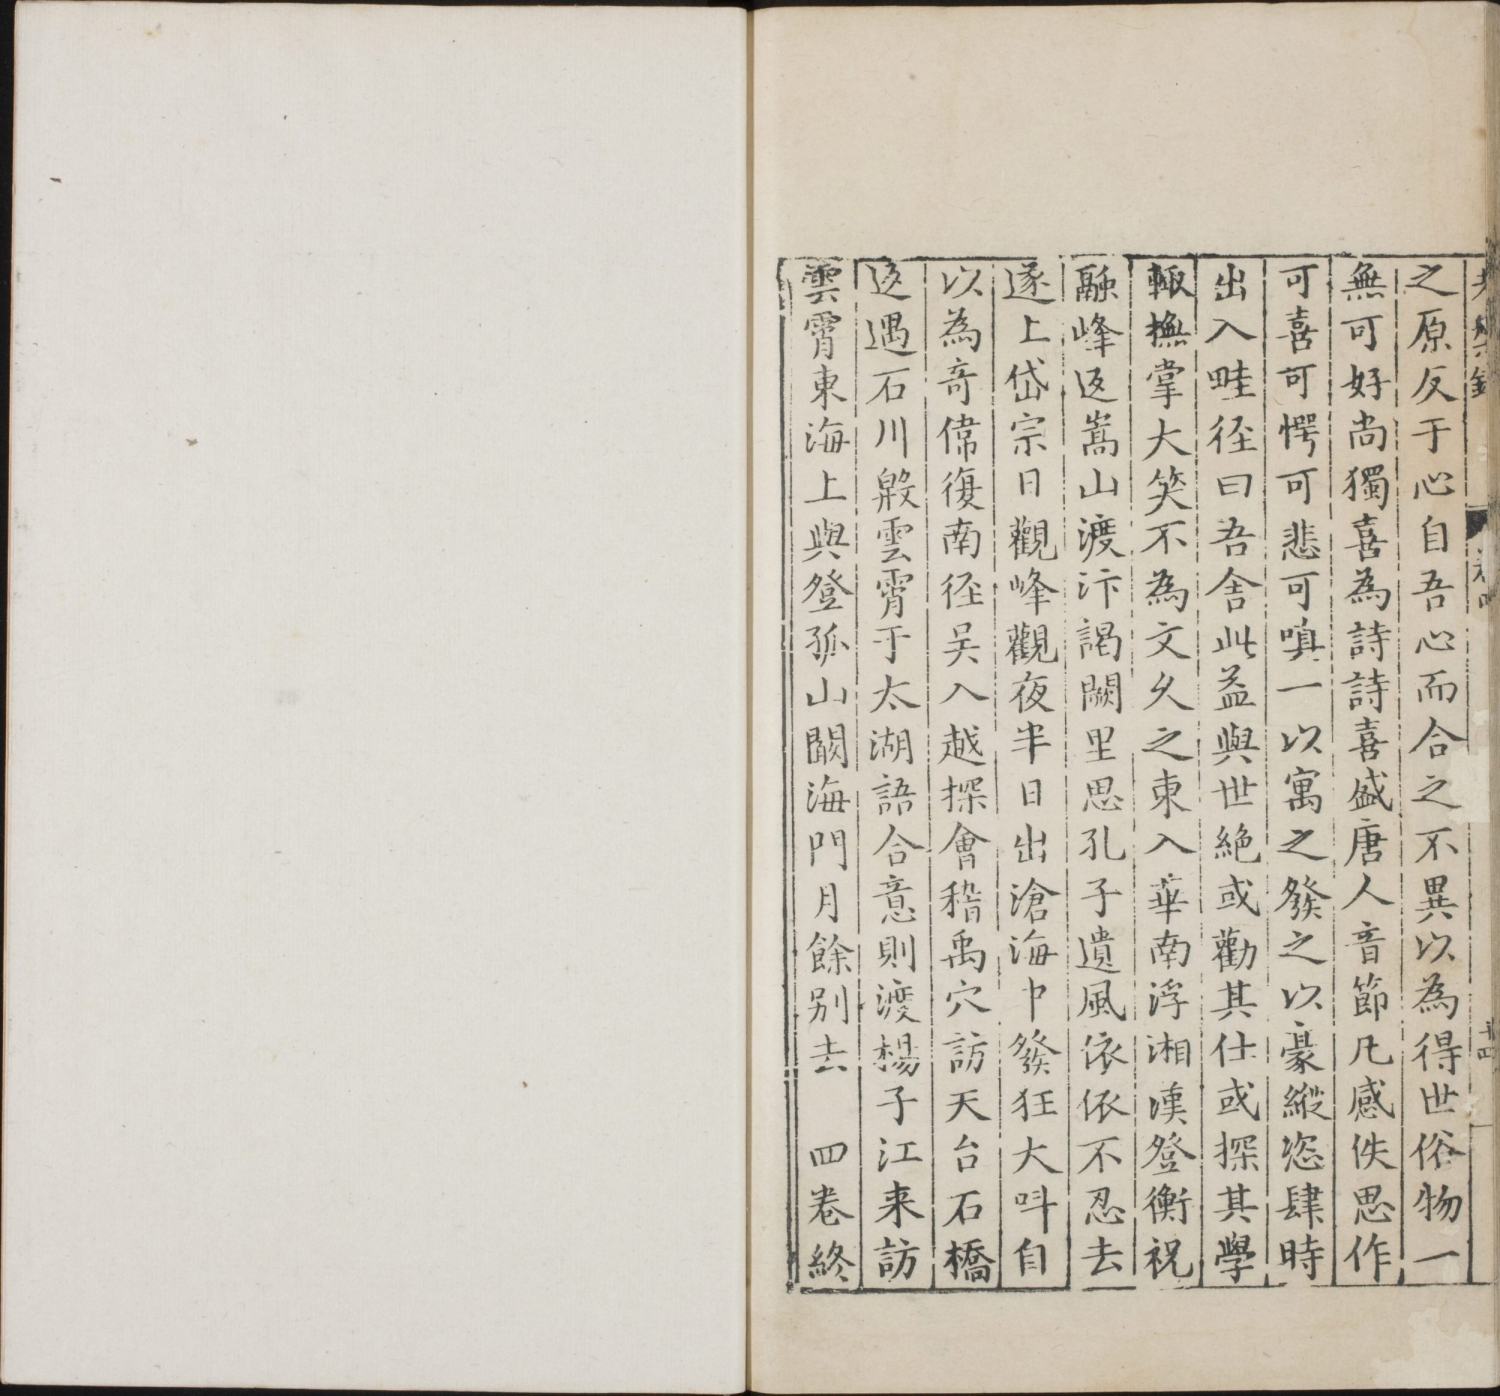 之原反于心自吾心而合之不異以為得世俗物一
無可好尚獨喜為詩詩喜盛唐人音節凡感佚思作
可喜可愕可悲可嗔一以寓之發之以豪縱恣肆時
出入畦徑曰吾舍此益與世絶或勸其仕或探其學
輙撫掌大笑不為文久之東入華南浮湘漢登衡祝
融峰返嵩山渡汴謁闕里思孔子遺風依依不忍去
遂上岱宗日觀峰觀夜半日出滄海中發狂大呌自
以為奇偉復南徑吴入越探會稽禹穴訪天台石橋
返遇石川殿雲霄于太湖語合意則渡楊子江来訪
雲霄東海上與登孤山闞海門月餘别去　四卷終